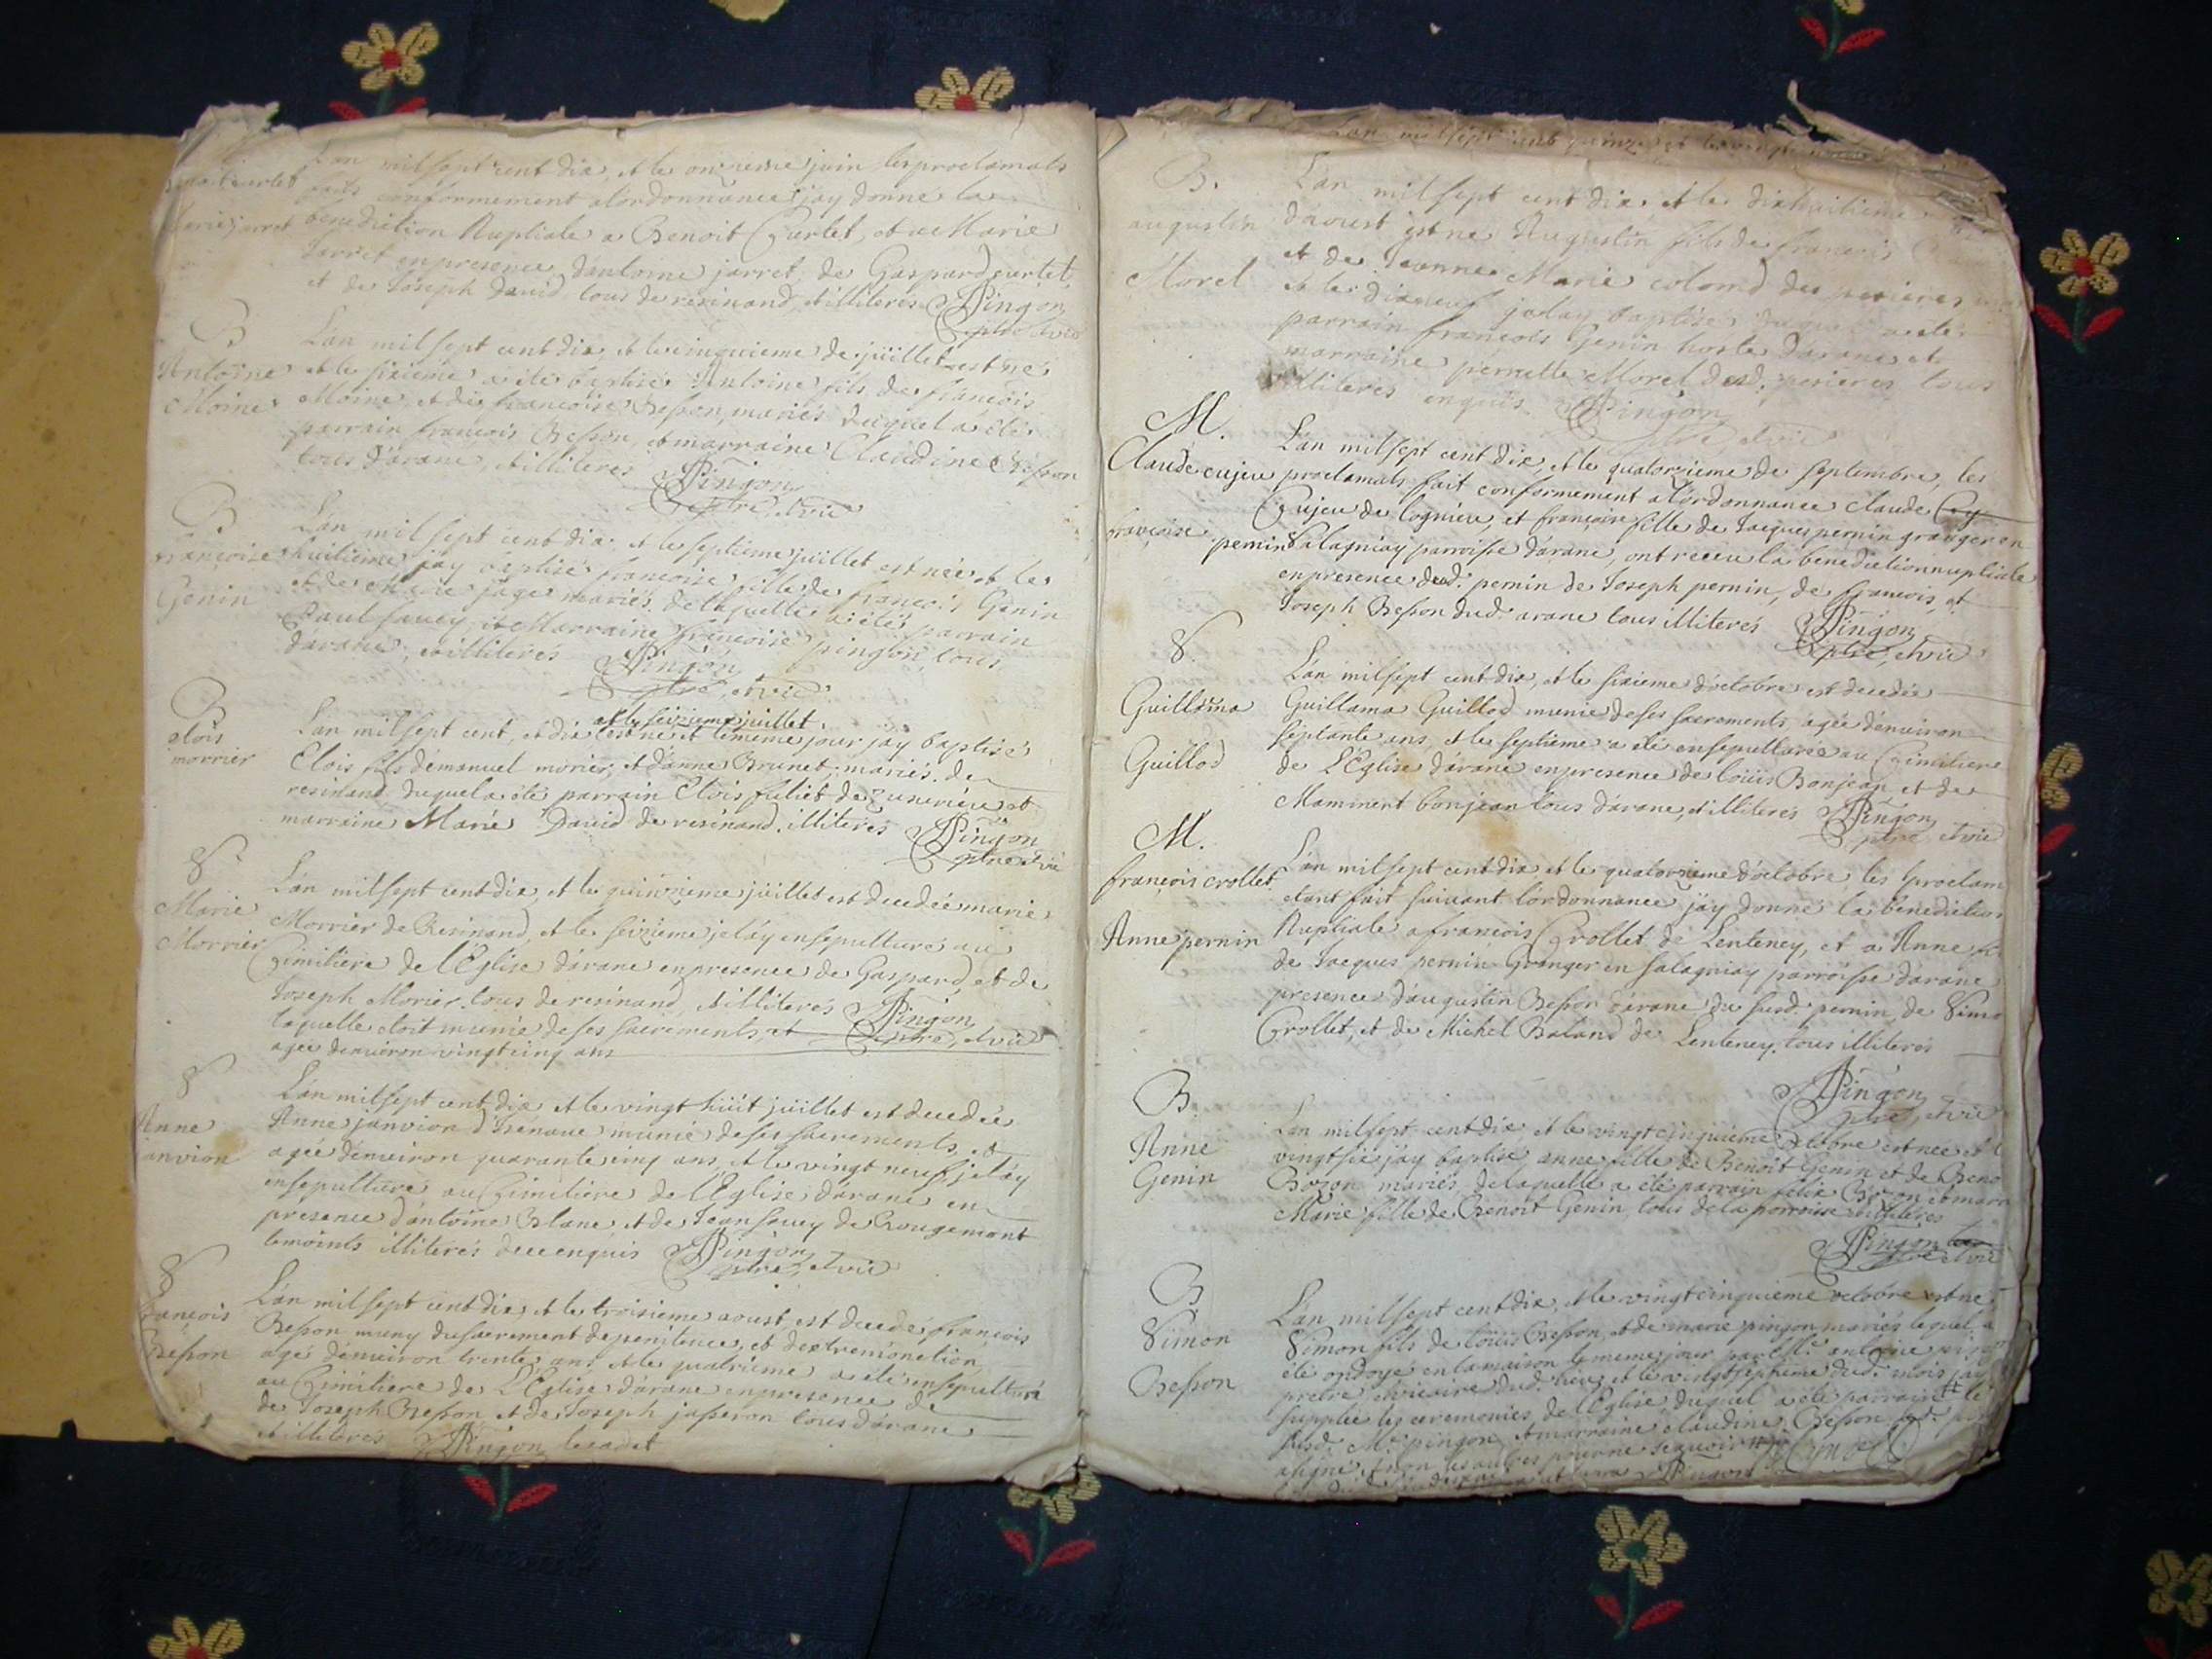 L'an mil sept cent dix, et le onzieme juin les proclamats
faits conformement a l'ordonnance j'ay donné la
benediction Nuptiale a Benoit Curlet, et a Marie
Jarret
Jarret en presence d'antoine jarret, de Gaspard curlet,
et de Joseph David tous de resinand, et illiterés Pingon
ptre et vic
B
Antoine
Moine
L'an mil sept cent dix, et le cinquieme de juillet est né
et le sixieme a été baptisé Antoine fils de françois
Moine, et de françoise Besson, mariés duquel a été
parrain françois Besson, et marraine Claudine Besson
tous d'arane, et illiteres Pingon
ptre et vic
B
francoise
Genin
L'an mil sept cent dix et le septieme juillet est née et le
huitieme jay baptisé francoise fille de françois Genin
et de Marie jage mariés de laquelle a été parrain
Paul sauey, et Marraine francoise pingon, tous
d'arane, et illiterés Pingon
ptre, et vic
B
elois
morrier
et le seizieme juillet
L'an mil sept cent, et dix est né et le meme jour jay baptisé
Elois fils d'emanuel morier, et d'anne Brunet, mariés de
resinand duquel a été parrain Elois juliet de et
marraine Marie David de resinand, illiteres Pingon
ptre et vic
S
Marie
Morrier
L'an mil sept cent dix, et le quinzieme juillet est decedée marie
Morrier de Resinand, et le seizieme je l'ay ensepulturé au
Cimitiere de l'Eglise d'arane en presence de Gaspard, et de
Joseph Morier tous de resinand, et illiterés Pingon
laquelle etoit munie de ses sacrements, et ptre, et vic
agée d'enuiron vingt cinq ans
S
Anne
janvion
L'an mil sept cent dix et le vingt huit juillet est decedée
Anne janvion d'Izenaue munie de ses sacrements, et
agée d'enuiron quarante cinq ans, et le vingt neuf je l'ay
ensepulturé au Cimitiere de l'Eglise d'arane en
presence d'antoine Blanc et de Jean sauey de Rougemont
temoints illiterés de ce enquis Pingon
ptre, et vic
S
françois
Besson
L'an mil sept cent dix, et le troisieme aoust est decedé françois
Besson muny du sacrement de penitence, et d'extremonction
agé d'enuiron trente ans, et le quatrieme a été ensepulturé
au Cimitiere de L'Eglise d'arane en presence de
de Joseph Besson, et de Joseph josseron tous d'arane
et illiterés Pingon le cadet
L'an mil sept cent
B.
augustin
Morel
L'an mil sept cent dix, et le dixhuitieme
d'aoust est né Augustin fils de francois
et de Jeanne Marie colomd des perieres
et le dixneuf je lay baptisé duquel a été
parrain francois Genin hoste d'arane et
marraine pernette Morel desd. perieres tous
illiteres enquis Pingon
ptre et vic
M.
Claude cujeu
francoise
pernin
L'an mil sept cent dix, et le quatorzieme de septembre, les
proclamats fait conformement a l'ordonnance claude
Cujeu de Cognieu, et francoise fille de Jacques pernin granger en
Salagniay parroisse d'arane, ont receu la benediction nuptiale
en presence dud. pernin de Joseph pernin, de francois, et
Joseph Besson dud. arane tous illiterés Pingon
ptre, et vic
S.
Guillama
Guillod
L'an mil sept cent dix, et le sixieme d'octobre est decedée
Guillama Guillod munie de ses sacrements agée d'enuiron
septante ans, et le septieme a été ensepulturée au Cimitiere
de L'Eglise d'arane en presence de Loüis Bonjean, et de
Mammert bonjean tous d'arane, et illiterés Pingon
ptre et vic
M.
francois crollet
Anne pernin
L'an mil sept cent dix et le quatorzieme d'octobre les proclam
etant fait suiuant l'ordonnance j'ay donné la benediction
Nuptiale a francois Crollet de Lenteney, et a Anne
de Jacques pernin Granger en Salagniay parroisse d'arane
presence d'augustin Besson d'arane du susd. pernin, de Simo
Crollet, et de Michel Baland de Lenteney, tous illiterés
Pingon
ptre, et vic
B.
Anne
Genin
L'an mil sept cent dix et le vingt cinquieme octobre est née et l
vingt six jay baptisé anne fille de Benoit Genin et de Beno
Bozon mariés, de laquelle a été parrain felix Bozon et marr
Marie fille de Benoit Genin, tous de la parroisse illiteres
Pingon
ptre et vic
B
Simon
Besson
L'an mil sept cent dix, et le vingt cinquieme octobre est né
Simon fils de Loüis Besson, et de marie pingon mariés lequel a
été ondoyé en la maison le meme jour par Mre antoine pingon
pretre et vicaire dud. lieu, et le vingt septieme dud. mois jay
supplée les ceremonies de l'Eglise, duquel a été parrain le
susd. Mre pingon, et marraine claudine Besson
a signé et non les autres pour ne scauoir